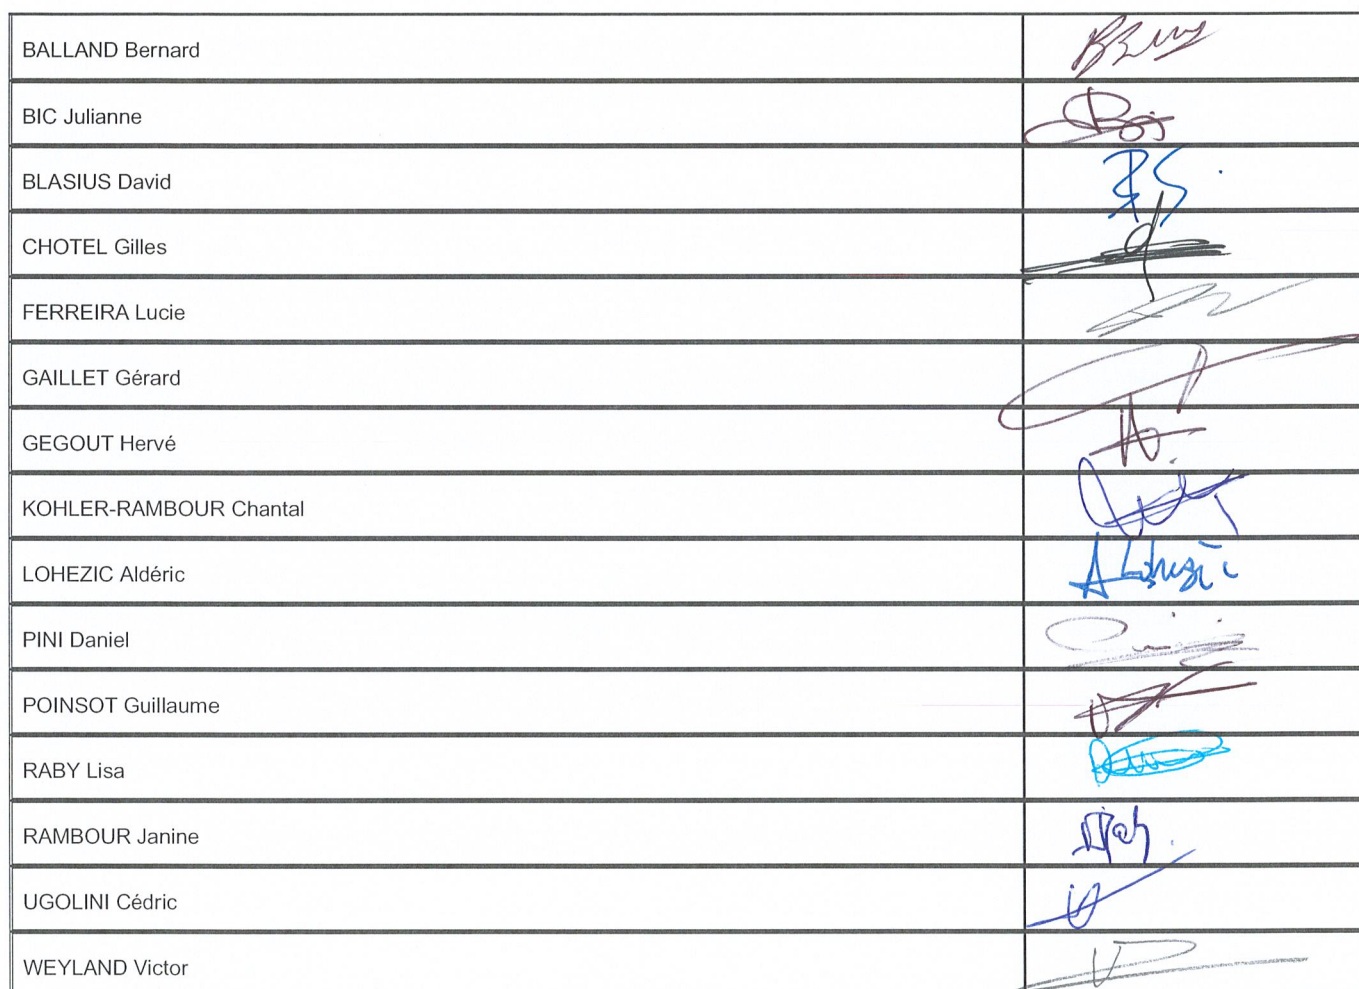 BALLAND Bernard
BIC Julianne
BLASIUS David
CHOTEL Gilles
FERREIRA Lucie
GAILLET Gérard
GEGOUT Hervé
KOHLER-RAMBOUR Chantal
LOHEZIC Aldéric
A Lohezic
PINI Daniel
POINSOT Guillaume
RABY Lisa
RAMBOUR Janine
UGOLINI Cédric
WEYLAND Victor